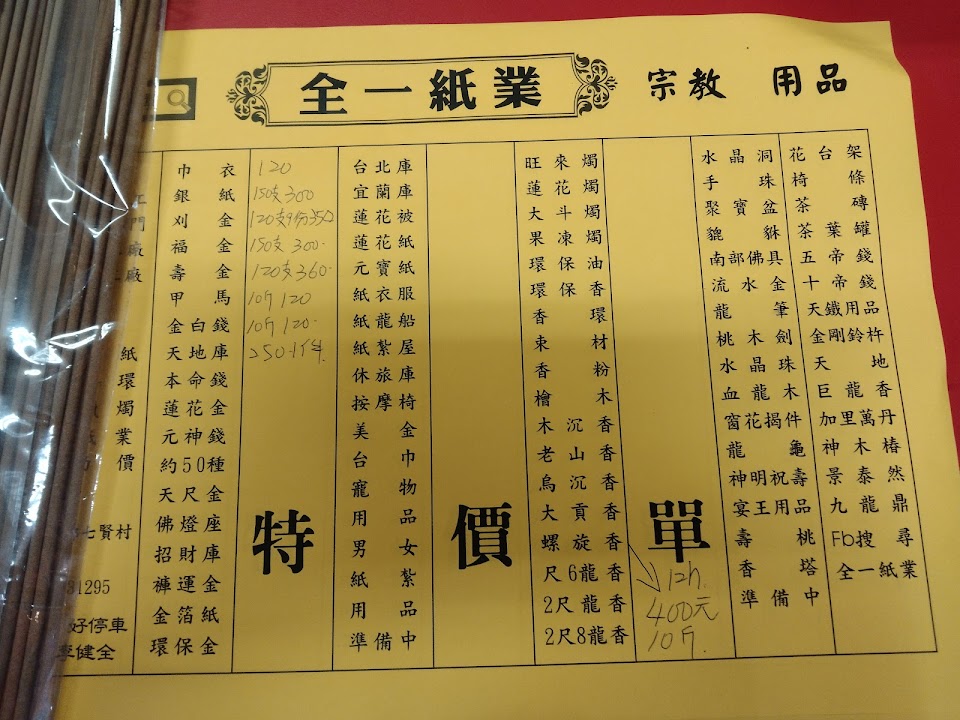 全一紙業
宗教 用品
巾衣 120
銀紙 150支300
刈金
福金 150支 300
壽金 120支360
甲馬 10斤 120
金白錢 10斤 120
天地庫
本命錢
蓮花金
元神錢
約50種
天尺金
佛燈座
招財庫
褲運金
金箔紙
環保金
台北庫
宜蘭庫
蓮花被
蓮花紙
元寶紙
紙衣服
紙龍船
紙紮屋
休旅庫
按摩椅
美金
台巾
寵物
用品
男女
紙紮
用品
準備中
旺來燭
蓮花燭
大斗燭
果凍燭
環保油
環保香
香環
束材
香粉
檜木
木沉香
老山香
烏沉香
大貢香
螺旋香
尺6龍香
2尺龍香
2尺8龍香
12h.
400元
10斤.
水晶洞
手珠
聚寶盆
貔貅
南部佛具
流水金
龍筆
桃木劍
水晶珠
血龍木
窗花揭件
龍龜
神明祝壽
宴王用品
壽桃
香塔
準備中
花台架
椅條
茶磚
茶葉罐
五帝錢
十帝錢
天鐵用品
金剛鈴杵
天地
巨龍香
加里萬丹
神木椿
景泰然
九龍鼎
Fb搜尋
全一紙業
特價單
門
廠
廠
紙
環
燭
業
價
七賢村
31295
好停車
李健全